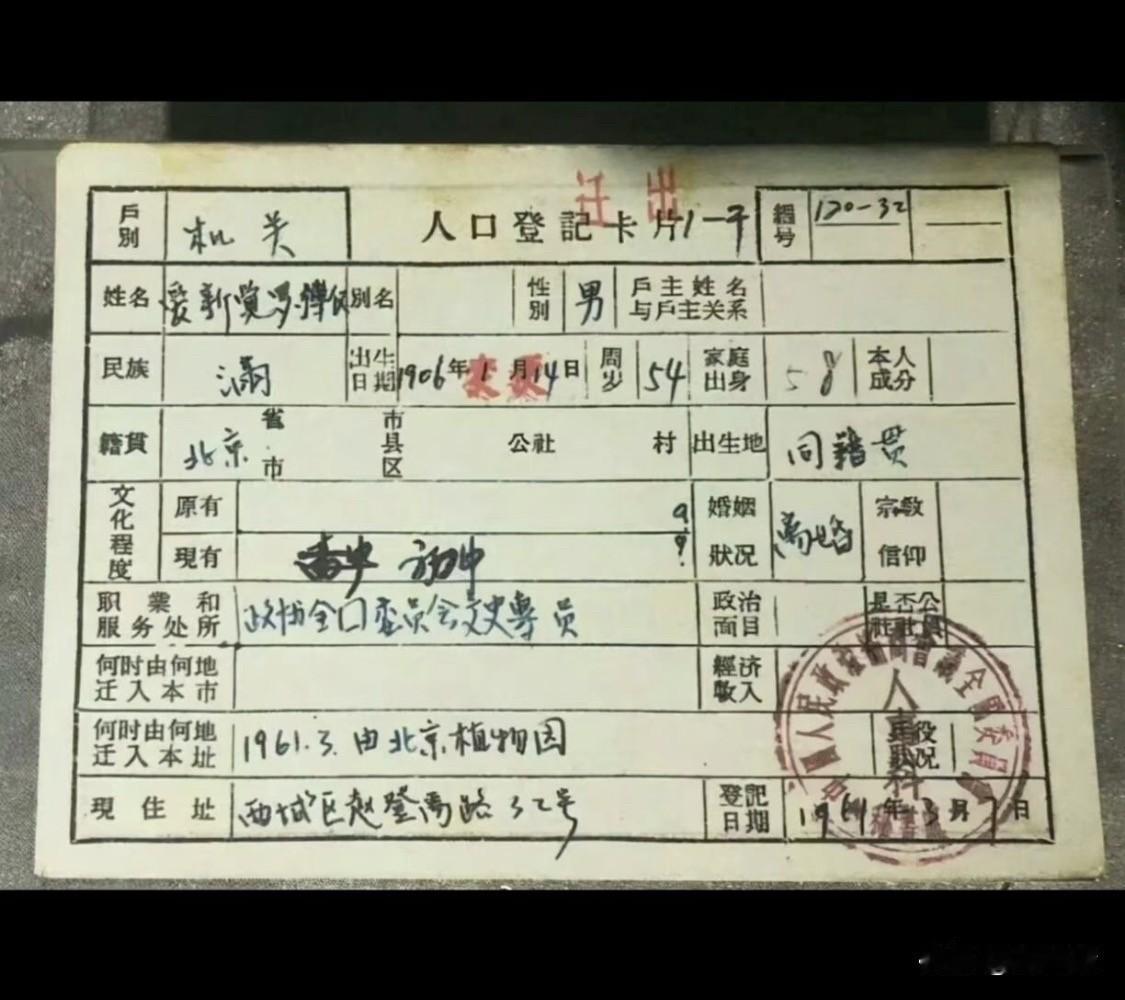 迁出
戶別 机关 人口登記卡片 1-7 編号 170-32
姓名 爱新觉罗·溥仪 別名 性別 男 戶主姓名与戶主关系
民族 滿 出生日期 1906年1月14日 周岁 54 家庭出身 58 本人成分
变更
籍貫 北京 省市 市县区 公社 村 出生地 同籍贯
文化程度 原有 婚姻狀况 离婚 宗教信仰
現有 初中
职業和服务处所 政协全囗委员会文史專员 政治面目 是否公社社員
何时由何地迁入本市 經济收入
何时由何地迁入本址 1961.3.由北京植物园 兵役狀况
現住址 西城区赵登禹路32号 登記日期 1961年3月7日
中國人民政治協商會議全國委員會
人事科
秘書處